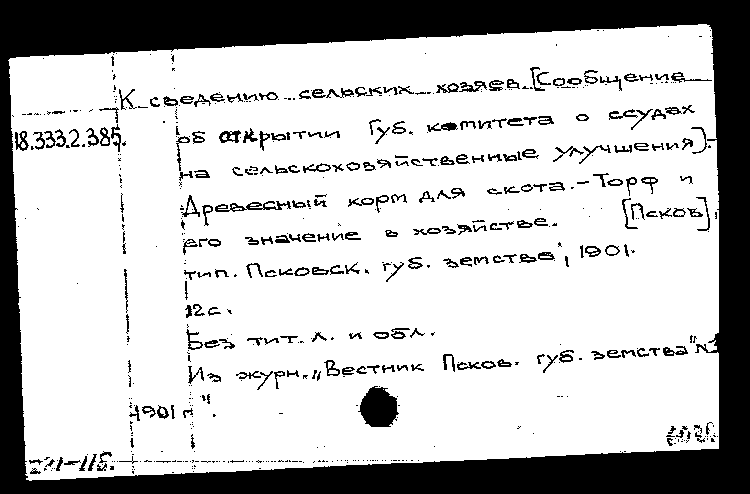 К сведению сельских хозяев [Сообщение
18.333.2.385.
об открытии Губ. комитета о ссудах
на сельскохозяйственные улучшения].-
Древесный корм для скота.-Торф и
его значение в хозяйстве. [Псков],
тип. Псковск. губ. земства, 1901.
12с.
Без тит. л. и обл.
Из журн. „Вестник Псков. губ. земства" №1
1901 г".